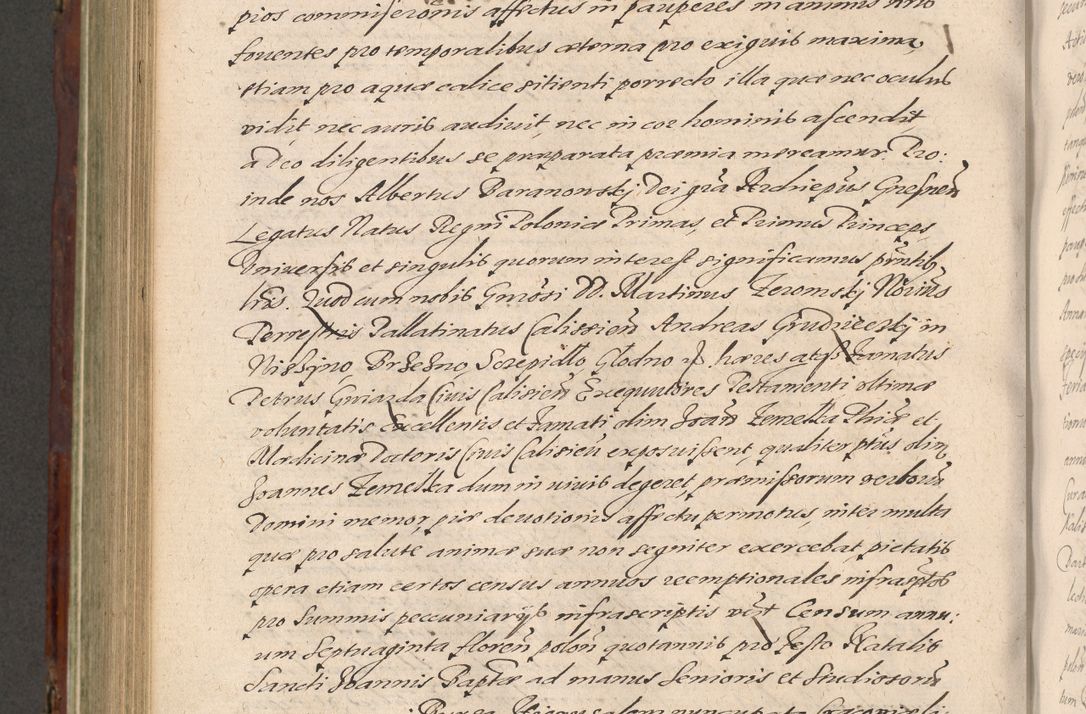 pios commiseronis affectus in pauperes in animis nris
fouentes pro temporalibus æterna pro exiguis maxima,
etiam pro aquæ calice sitienti porrecto illa quæ nec oculus
vidit, nec auris audiuit, nec in cor hominis ascendit
a Deo diligentibus se præparata præmia mereamur. Pro:
inde nos Albertus Baranowskj Dei gra Archiepus Gnesnen
Legatus Natus Regni Poloniæ Primas, et Primus Princeps,
Vniuersis et singulis quorum interest significamus pntib
lris. Quod cum nobis Gnrosi DD. Martinus Zeromskj Norius
Terrestris Pallatinatus Calissien Andreas Grudzieckj in
Petrus Gwiazda Ciuis Calisien Exequutores Testamenti vltimæ
voluntatis Excellentis et Famati olim Joan Zemelka Phiæ et
Medicinæ Doctoris Ciuis Calisien exposuissent, qualiter ptus olim
Joannes Zemelka dum in viuis degeret, præmissorum verborum
Domini memor, piæ deuotionis affectu permotus, inter multa
quæ pro salute animæ suæ non segniter exercebat, pietatis
opera etiam certos census annuos reemptionales infrasptos
pro summis pecuniarijs infrascriptis vdt Censum annu:
um Septuaginta floren polon quotannis pro Festo Natalis
Sancti Joannis Baptæ ad manus Senioris et Studiosorum